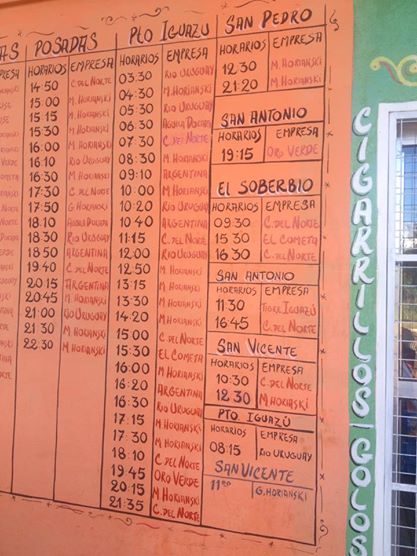 POSADAS
HORARIOS EMPRESA
14:50 C. DEL NORTE
15:00 M. HORIANSKI
15:15 M. HORIANSKI
15:30 M. HORIANSKI
16:10 RIO URUGUAY
16:30 M. HORIANSKI
17:30 C. DEL NORTE
17:50 G. HORIANSKI
18:10 AGUILA DORADA
18:30 RIO URUGUAY
18:50 ARGENTINA
19:40 C. DEL NORTE
20:15 ARGENTINA
20:45 M. HORIANSKI
21:00 RIO URUGUAY
21:30 M. HORIANSKI
22:30 M. HORIANSKI
PTO IGUAZU
HORARIOS EMPRESA
03:30 RIO URUGUAY
04:30 M. HORIANSKI
05:30 RIO URUGUAY
06:30 AGUILA DORADA
07:30 C. DEL NORTE
08:30 M. HORIANSKI
09:10 ARGENTINA
10:00 M. HORIANSKI
10:20 RIO URUGUAY
10:40 ARGENTINA
11:15 C. DEL NORTE
12:00 RIO URUGUAY
12:50 M. HORIANSKI
13:15 M. HORIANSKI
13:30 M. HORIANSKI
14:20 M. HORIANSKI
15:00 C. DEL NORTE
15:30 EL COMETA
16:00 M. HORIANSKI
16:20 ARGENTINA
16:30 RIO URUGUAY
17:15 M. HORIANSKI
17:30 M. HORIANSKI
18:10 C. DEL NORTE
19:45 ORO VERDE
20:15 M. HORIANSKI
21:35 C. DEL NORTE
SAN PEDRO
HORARIOS EMPRESA
12:30 M. HORIANSKI
21:20 M. HORIANSKI
SAN ANTONIO
HORARIOS EMPRESA
19:15 ORO VERDE
EL SOBERBIO
HORARIOS EMPRESA
09:30 C. DEL NORTE
15:30 EL COMETA
16:30 C. DEL NORTE
SAN ANTONIO
HORARIOS EMPRESA
11:30 TIGRE IGUAZÚ
16:45 C. DEL NORTE
SAN VICENTE
HORARIOS EMPRESA
10:30 C. DEL NORTE
12:30 M. HORIASKI
PTO IGUAZÚ
HORARIOS EMPRESA
08:15 RIO URUGUAY
SAN VICENTE
11:00 G. HORIANSKI
CIGARRILLOS GOLOS